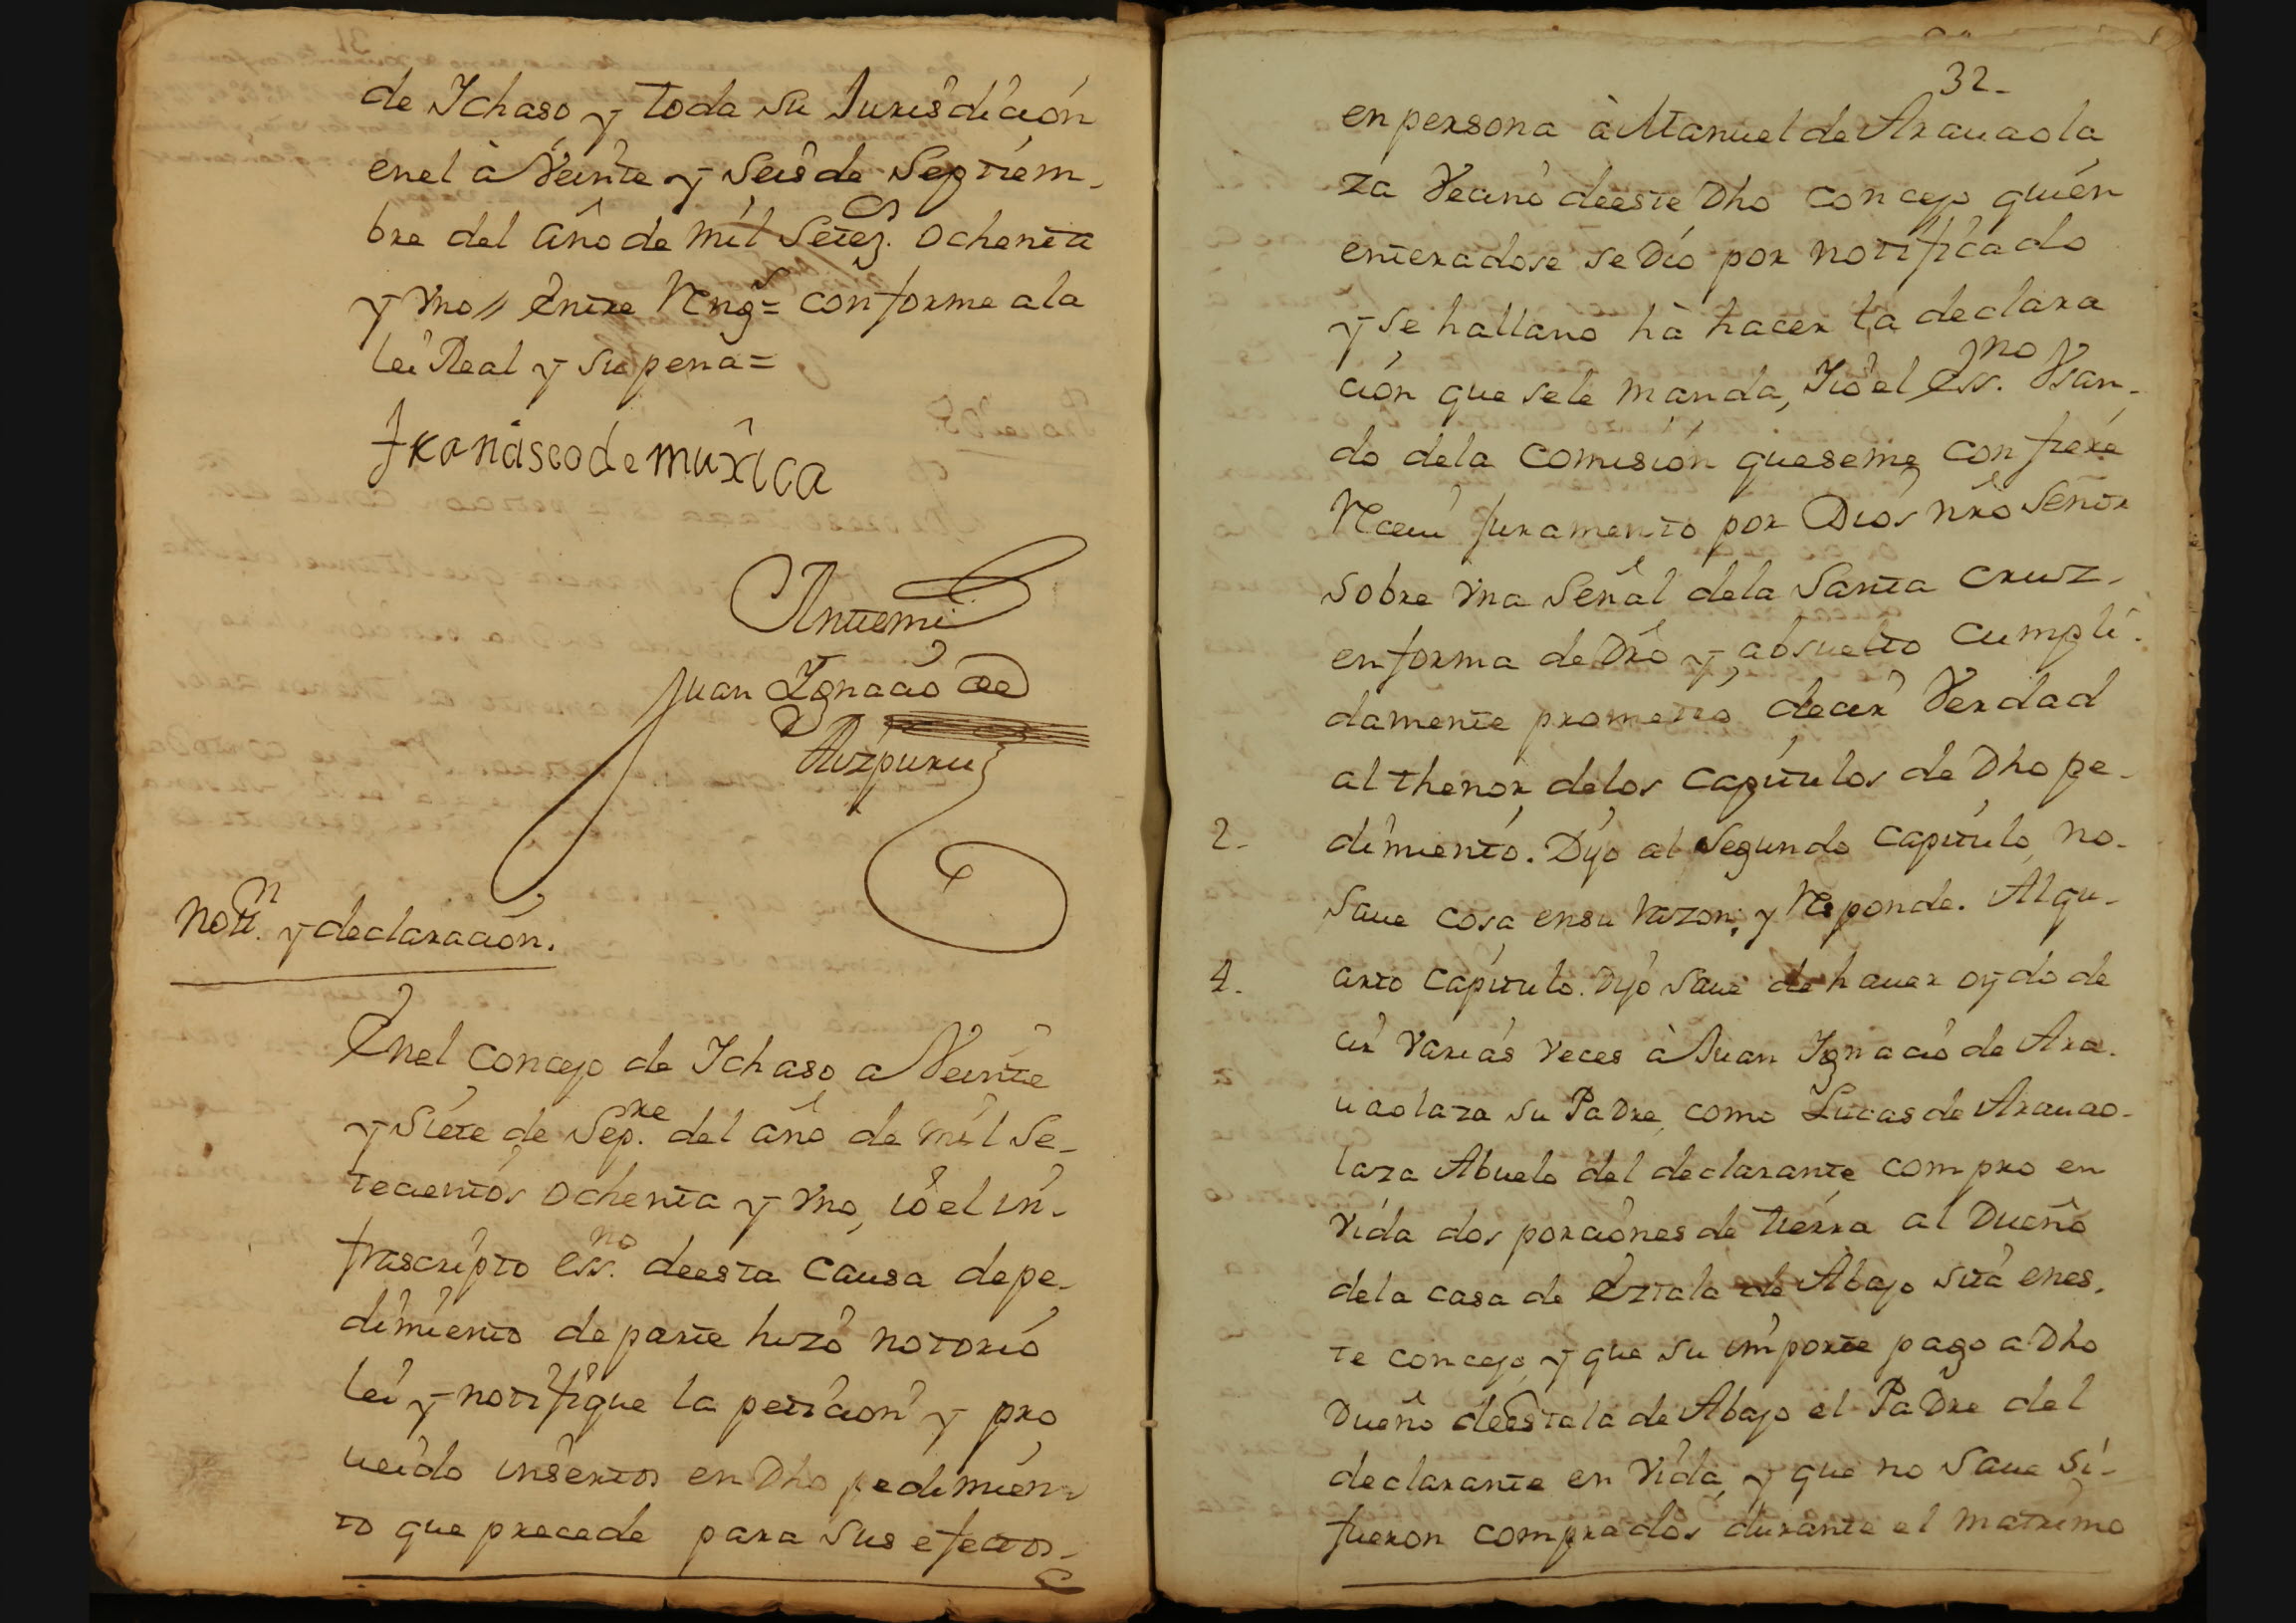 de Ichaso y toda su Jurisdición
enel à Veinte y seis de Septiem-
bre del año de mil Setezs. ochenta
y Vno // Entre Rengs = conforme ala
lei Real y su pena =
franciscode muxica
Antemi
Juan Ignacio de
Aizpuru
Notin. y declaración.
Enel concejo de Ichaso a Veinte
y siete de Sepre. del año de mil se-
tecientos ochenta y Vno, ió el in-
frascripto essno. deesta causa depe-
dimiento de parte hizó notorio
leí y notifique la petición y pro
ueido insertos en Dho pedimien-
to que precede para sus efectos-
32-
en persona à Manuel de Arauaola
za Vecino deeste Dho concejo quién
enteradose se Dío por notificado
y se hallano hà hacer la declara
ción que sele manda, Yió el Essno. Vsan-
do dela comisión queseme confiere
Receui Juramento por Dios nro Señor
sobre Vna Señal dela Santa Cruz-
en forma de Dro y absuelto cumpli-
damente prometió decir Verdad
al thenor delos capitulos de Dho pe-
2- dimiento. Dijo al segundo capitulo, no-
saue cosa ensu razon, y Responde. Alqu-
4. arto capitulo. Dijo saue de hauer oydo de
cir varias veces à Juan Ignacio de Ara-
uaolaza su Padre, como Lucas de Arauao-
laza Abuelo del declarante compro en
vida dos porciónes de tierra al Dueño
dela casa de Eztala de Abajo sita enes-
te concejo, y que su importe pago a Dho
Dueño deEstala de Abajo el Padre del
declarante en vida, y que no saue si-
fueron comprados durante el matrimo